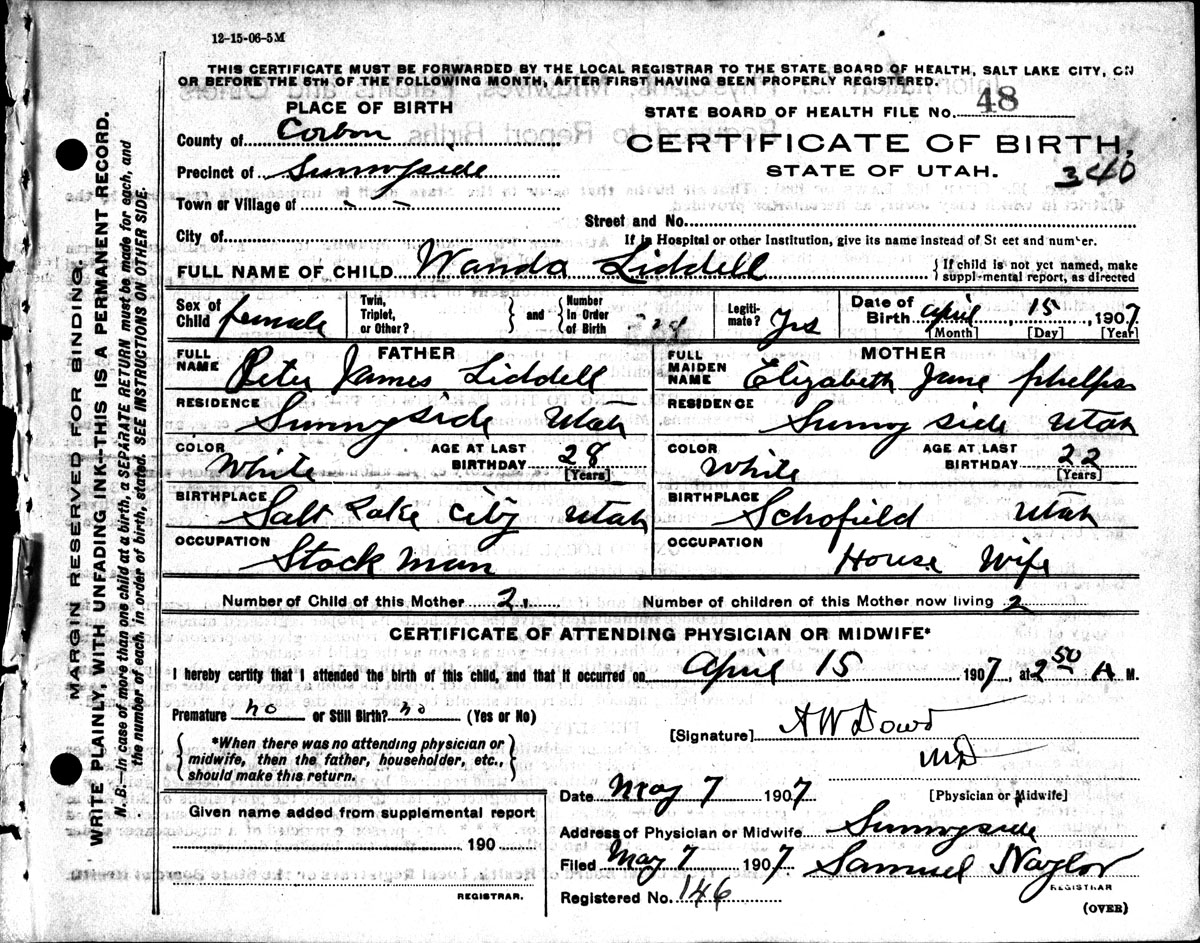 12-15-06-5M
THIS CERTIFICATE MUST BE FORWARDED BY THE LOCAL REGISTRAR TO THE STATE BOARD OF HEALTH, SALT LAKE CITY, ON
OR BEFORE THE 5TH OF THE FOLLOWING MONTH, AFTER FIRST HAVING BEEN PROPERLY REGISTERED.
PLACE OF BIRTH
County of Corbon
Precinct of Sunnyside
Town or Village of
City of
STATE BOARD OF HEALTH FILE No. 48
CERTIFICATE OF BIRTH,
STATE OF UTAH. 340
Street and No.
If in Hospital or other Institution, give its name instead of St eet and number.
FULL NAME OF CHILD Wanda Liddell
If child is not yet named, make
suppl-mental report, as directed
Sex of Child female
Twin, Triplet, or Other?
and
Number In Order of Birth
Legiti-mate? Yes
Date of Birth April, 15, 1907
[Month] [Day] [Year]
FATHER
FULL NAME Peter James Liddell
RESIDENCE Sunnyside Utah
COLOR White AGE AT LAST BIRTHDAY 28 [Years]
BIRTHPLACE Salt Lake City Utah
OCCUPATION Stock man
MOTHER
FULL MAIDEN NAME Elizabeth Jane Phelps
RESIDENCE Sunny side Utah
COLOR White AGE AT LAST BIRTHDAY 22 [Years]
BIRTHPLACE Schofield Utah
OCCUPATION House Wife
Number of Child of this Mother 2 Number of children of this Mother now living 2
CERTIFICATE OF ATTENDING PHYSICIAN OR MIDWIFE*
I hereby certify that I attended the birth of this child, and that it occurred on April 15 1907, at 2 50 A M.
Premature no or Still Birth? no (Yes or No)
*When there was no attending physician or
midwife, then the father, householder, etc.,
should make this return.
[Signature] A W Dowd
MD
[Physician or Midwife]
Date May 7 1907
Address of Physician or Midwife Sunnyside
Filed May 7 1907 Samuel Naylor
REGISTRAR
Registered No. 146
(OVER)
Given name added from supplemental report
190
REGISTRAR.
MARGIN RESERVED FOR BINDING.
WRITE PLAINLY, WITH UNFADING INK—THIS IS A PERMANENT RECORD.
N. B.—In case of more than one child at a birth, a SEPARATE RETURN must be made for each, and
the number of each, in order of birth, stated. SEE INSTRUCTIONS ON OTHER SIDE.